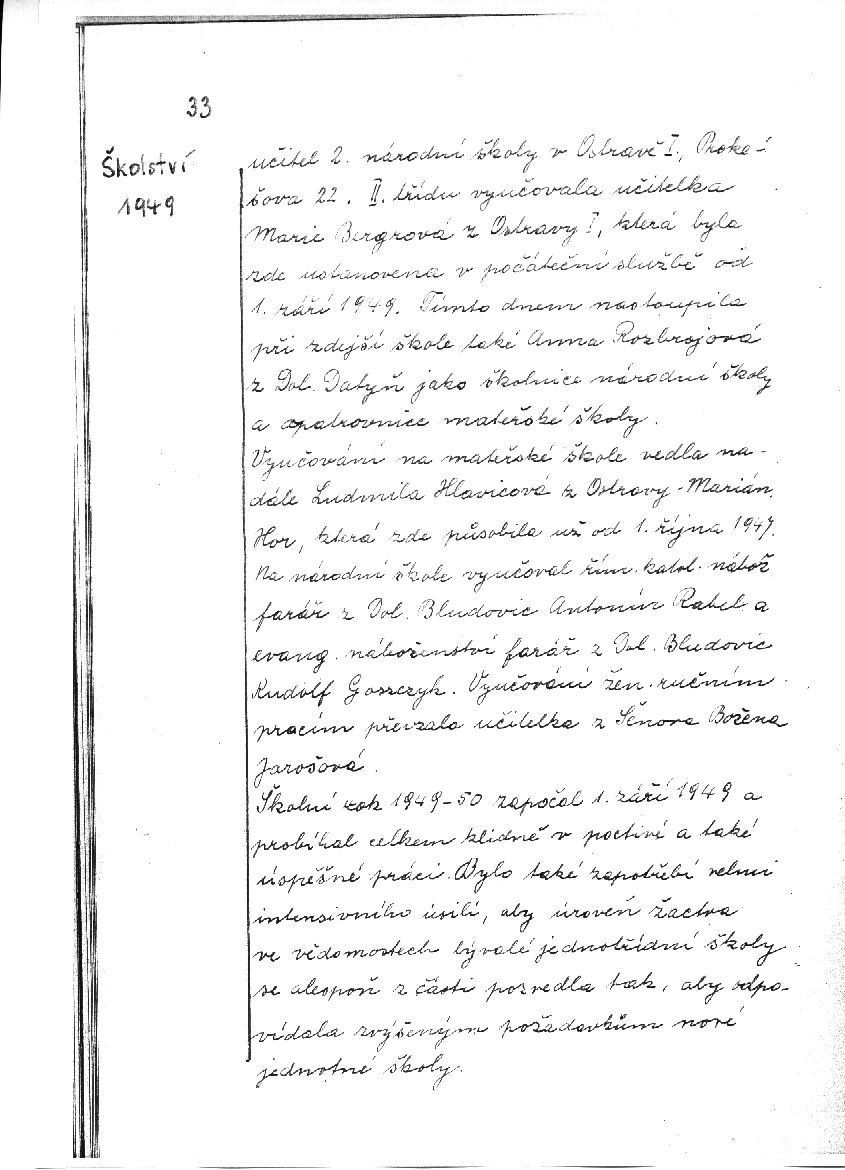 33
Školství
1949
učitel 2. národní školy v Ostravě I., Proke-
šova 22. II. třídu vyučovala učitelka
Marie Bergrová z Ostravy I, která byla
zde ustanovena v počáteční službě od
1. září 1949. Tímto dnem nastoupila
při zdejší škole také Anna Rozbrojová
z Dol. Datyň jako školnice národní školy
a opatrovnice mateřské školy.
Vyučování na mateřské škole vedla na-
dále Ludmila Hlavicová z Ostravy-Marián.
Hor, která zde působila už od 1. října 1947.
Na národní škole vyučoval řím. katol. nábož
farář z Dol. Bludovic Antonín Rabel a
evang. náboženství farář z Dol. Bludovic
Rudolf Goszczyk. Vyučování žen. ručním
pracím převzala učitelka z Šenova Božena
Jarošová.
Školní rok 1949-50 započal 1. září 1949 a
probíhal celkem klidně v poctivé a také
úspěšné práci. Bylo také zapotřebí velmi
intensivního úsilí, aby úroveň žactva
ve vědomostech bývalé jednotřídní školy
se alespoň z části pozvedla tak, aby odpo-
vídala zvýšeným požadavkům nové
jednotné školy.